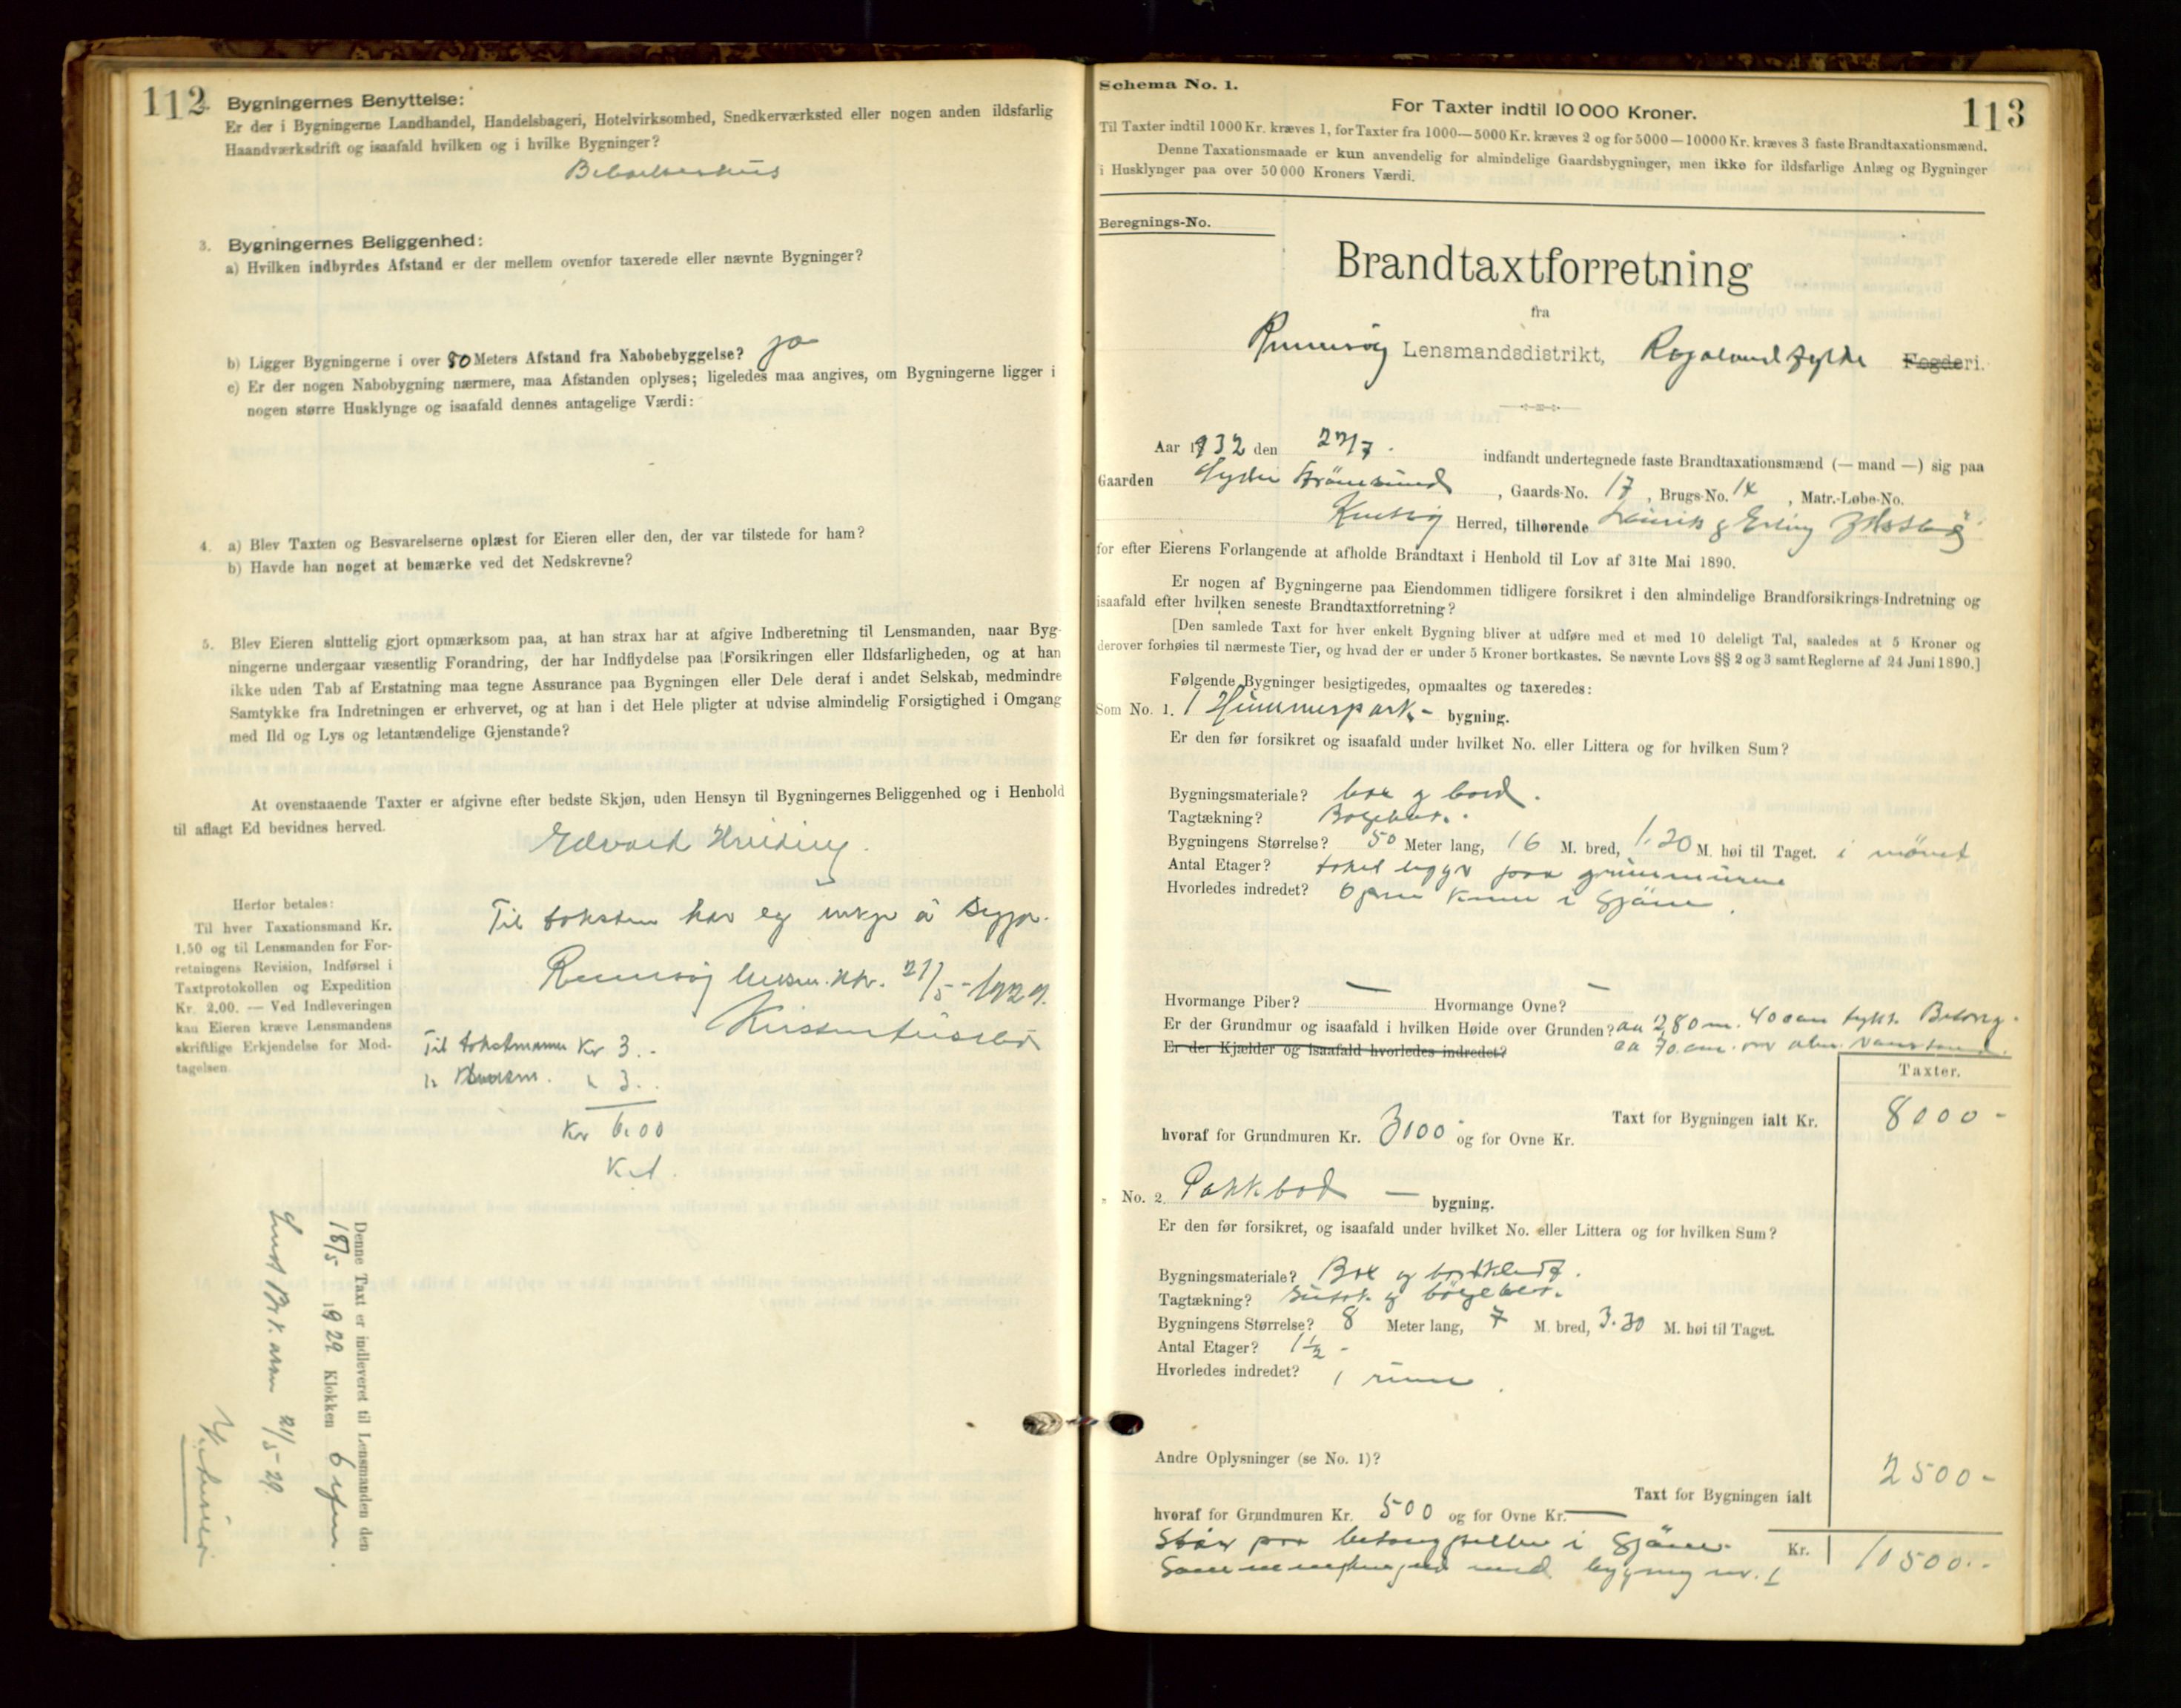 112
Bygningernes Benyttelse:
Er der i Bygningerne Landhandel, Handelsbageri, Hotelvirksomhed, Snedkerværksted eller nogen anden ildsfarlig
Haandværksdrift og isaafald hvilken og i hvilke Bygninger?
Beboelseshus
3. Bygningernes Beliggenhed:
a) Hvilken indbyrdes Afstand er der mellem ovenfor taxerede eller nævnte Bygninger?
b) Ligger Bygningerne i over 50 Meters Afstand fra Nabobebyggelse? ja
c) Er der nogen Nabobygning nærmere, maa Afstanden oplyses; ligeledes maa angives, om Bygningerne ligger i
nogen større Husklynge og isaafald dennes antagelige Værdi:
4. a) Blev Taxten og Besvarelserne oplæst for Eieren eller den, der var tilstede for ham?
b) Havde han noget at bemærke ved det Nedskrevne?
5. Blev Eieren sluttelig gjort opmærksom paa, at han strax har at afgive Indberetning til Lensmanden, naar Byg-
ningerne undergaar væsentlig Forandring, der har Indflydelse paa Forsikringen eller Ildsfarligheden, og at han
ikke uden Tab af Erstatning maa tegne Assurance paa Bygningen eller Dele deraf i andet Selskab, medmindre
Samtykke fra Indretningen er erhvervet, og at han i det Hele pligter at udvise almindelig Forsigtighed i Omgang
med Ild og Lys og letantændelige Gjenstande?
At ovenstaaende Taxter er afgivne efter bedste Skjøn, uden Hensyn til Bygningernes Beliggenhed og i Henhold
til aflagt Ed bevidnes herved.
Edvard
Til taksten har eg inkje å siggja.
21/5-1929.
Herfor betales:
Til hver Taxationsmand Kr.
1.50 og til Lensmanden for For-
retningens Revision, Indførsel i
Taxtprotokollen og Expedition
Kr. 2.00. — Ved Indleveringen
kan Eieren kræve Lensmandens
skriftlige Erkjendelse for Mod-
tagelsen
Til takstmannen Kr 3.-
3..
Kr 6.00
Denne Taxt er indleveret til Lensmanden den
18/5 1929 Klokken 6
21/5-29.
Schema No. 1.
113
For Taxter indtil 10 000 Kroner.
Til Taxter indtil 1000 Kr. kræves 1, for Taxter fra 1000—5000 Kr. kræves 2 og for 5000—10000 Kr. kræves 3 faste Brandtaxationsmænd.
Denne Taxationsmaade er kun anvendelig for almindelige Gaardsbygninger, men ikke for ildsfarlige Anlæg og Bygninger
i Husklynger paa over 50 000 Kroners Værdi.
Beregnings-No.
Brandtaxtforretning
fra
Rennesøy Lensmandsdistrikt, Rogaland fylke Fogderi.
Aar 1932 den 27/7. indfandt undertegnede faste Brandtaxationsmænd (— mand —) sig paa
Gaarden , Gaards-No. 17 , Brugs-No. 14 , Matr.-Løbe-No.
Herred, tilhørende
for efter Eierens Forlangende at afholde Brandtaxt i Henhold til Lov af 31te Mai 1890.
Er nogen af Bygningerne paa Eiendommen tidligere forsikret i den almindelige Brandforsikrings-Indretning og
isaafald efter hvilken seneste Brandtaxtforretning?
[Den samlede Taxt for hver enkelt Bygning bliver at udføre med et med 10 deleligt Tal, saaledes at 5 Kroner og
derover forhøies til nærmeste Tier, og hvad der er under 5 Kroner bortkastes. Se nævnte Lovs §§ 2 og 3 samt Reglerne af 24 Juni 1890.]
Følgende Bygninger besigtigedes, opmaaltes og taxeredes:
Som No. 1. 1 Hummerpark - bygning.
Er den før forsikret og isaafald under hvilket No. eller Littera og for hvilken Sum?
Bygningsmateriale? og bord.
Tagtækning?
Bygningens Størrelse? 50 Meter lang, 16 M. bred, 1.20 M. høi til Taget. i mønet
Antal Etager? taket ligger paa grunnmurene
Hvorledes indredet? i sjøen.
Hvormange Piber? — Hvormange Ovne? —
Er der Grundmur og isaafald i hvilken Høide over Grunden? ca 2,80 m. 40 cm tykk. Betong.
Er der Kjælder og isaafald hvorledes indredet? ca 70 cm. over alm. vannstand.
Taxter.
Taxt for Bygningen ialt Kr. 8000-
hvoraf for Grundmuren Kr. 3000 og for Ovne Kr.
" No. 2. Pakkbod — bygning.
Er den før forsikret, og isaafald under hvilket No. eller Littera og for hvilken Sum?
Bygningsmateriale? og bordkledt.
Tagtækning?
Bygningens Størrelse? 8 Meter lang, 7 M. bred, 3.30 M. høi til Taget.
Antal Etager? 1 1/2 -
Hvorledes indredet? 1 rum.
Andre Oplysninger (se No. 1)?
Taxt for Bygningen ialt 2500-
hvoraf for Grundmuren Kr. 500 og for Ovne Kr. —
Står paa betongpeller i sjøen. Kr. 10500.-
med bygning nr. 1